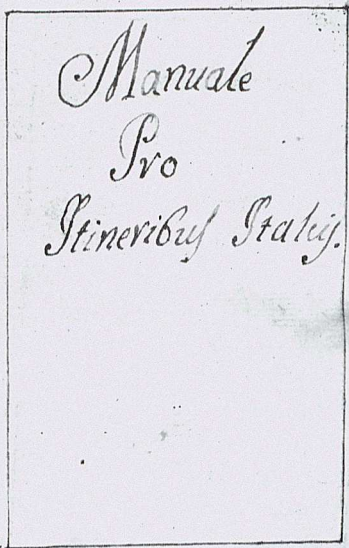 Manuale
Pro
Itineribus Italijs.